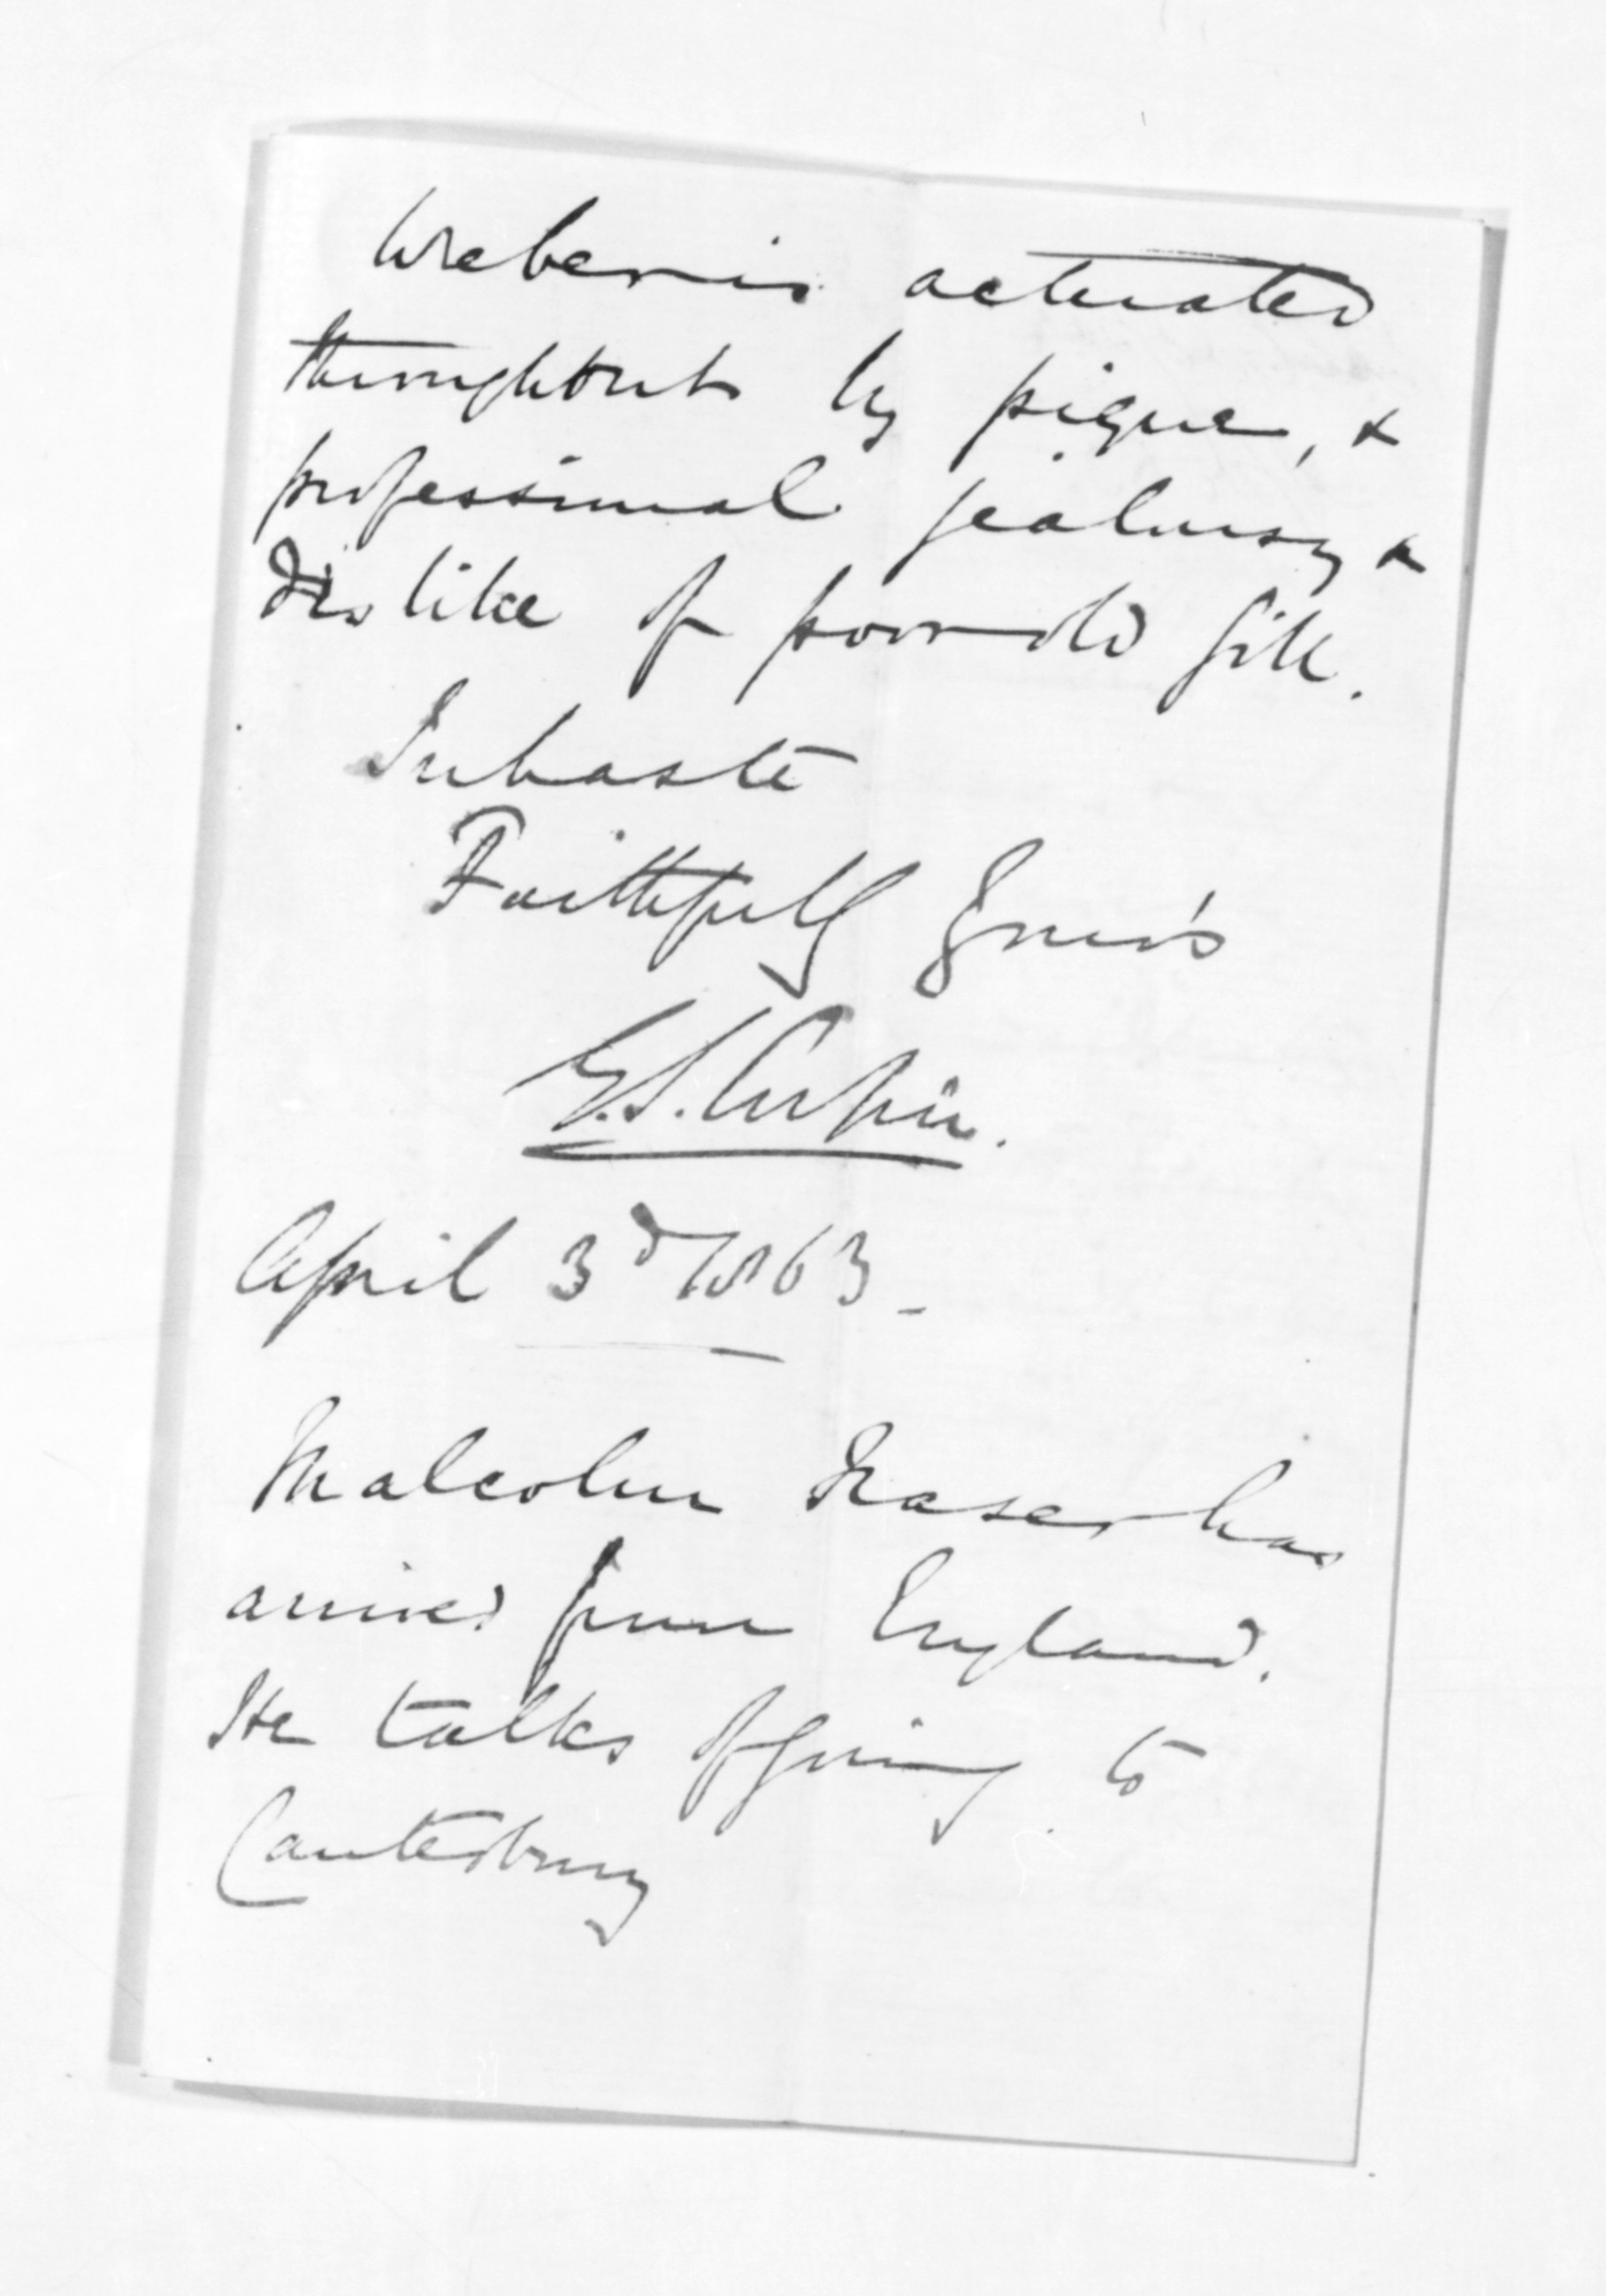 Weber is actuated
throughout by pique, &
professional jealousy &
dislike of poor old Gill.
In haste
Faithfully Your's
G.S. Cooper.
April 3d 1863_
Malcolm Fraser has
arrived from England.
He talks of going to
Canterbury